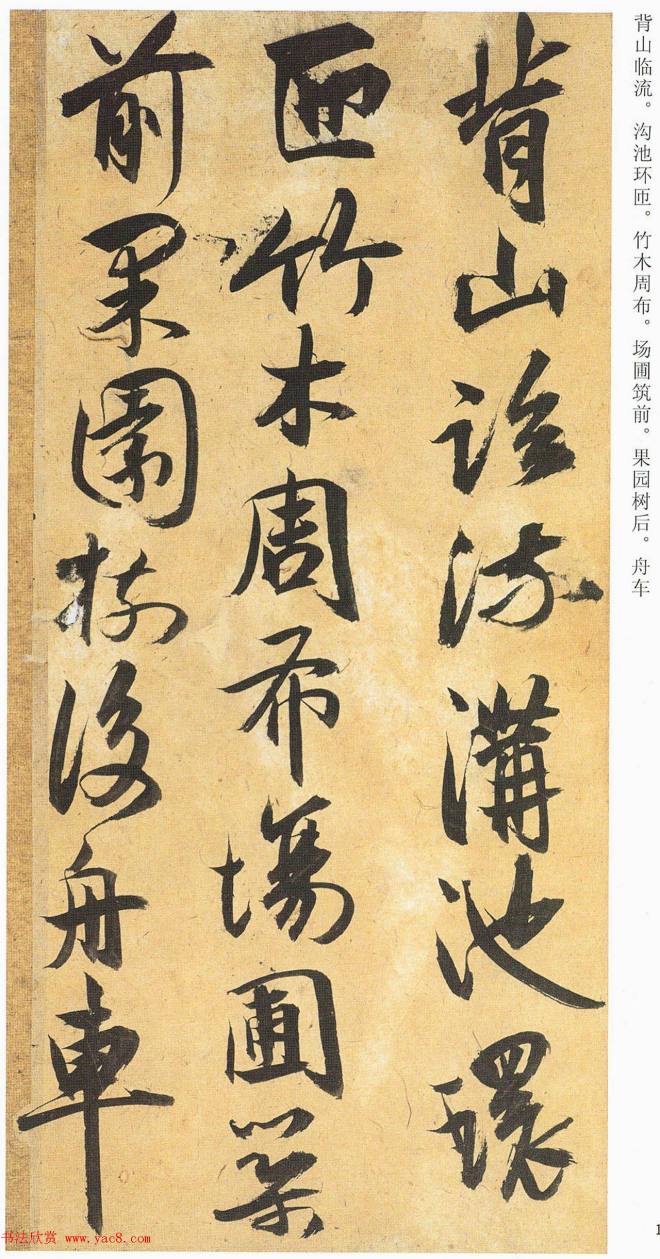 背山临流。沟池环匝。竹木周布。场圃筑前。果园树后。舟车
背山臨流溝池環
匝竹木周布場圃築
前果園樹後舟車
1
书法欣赏 www.yac8.com